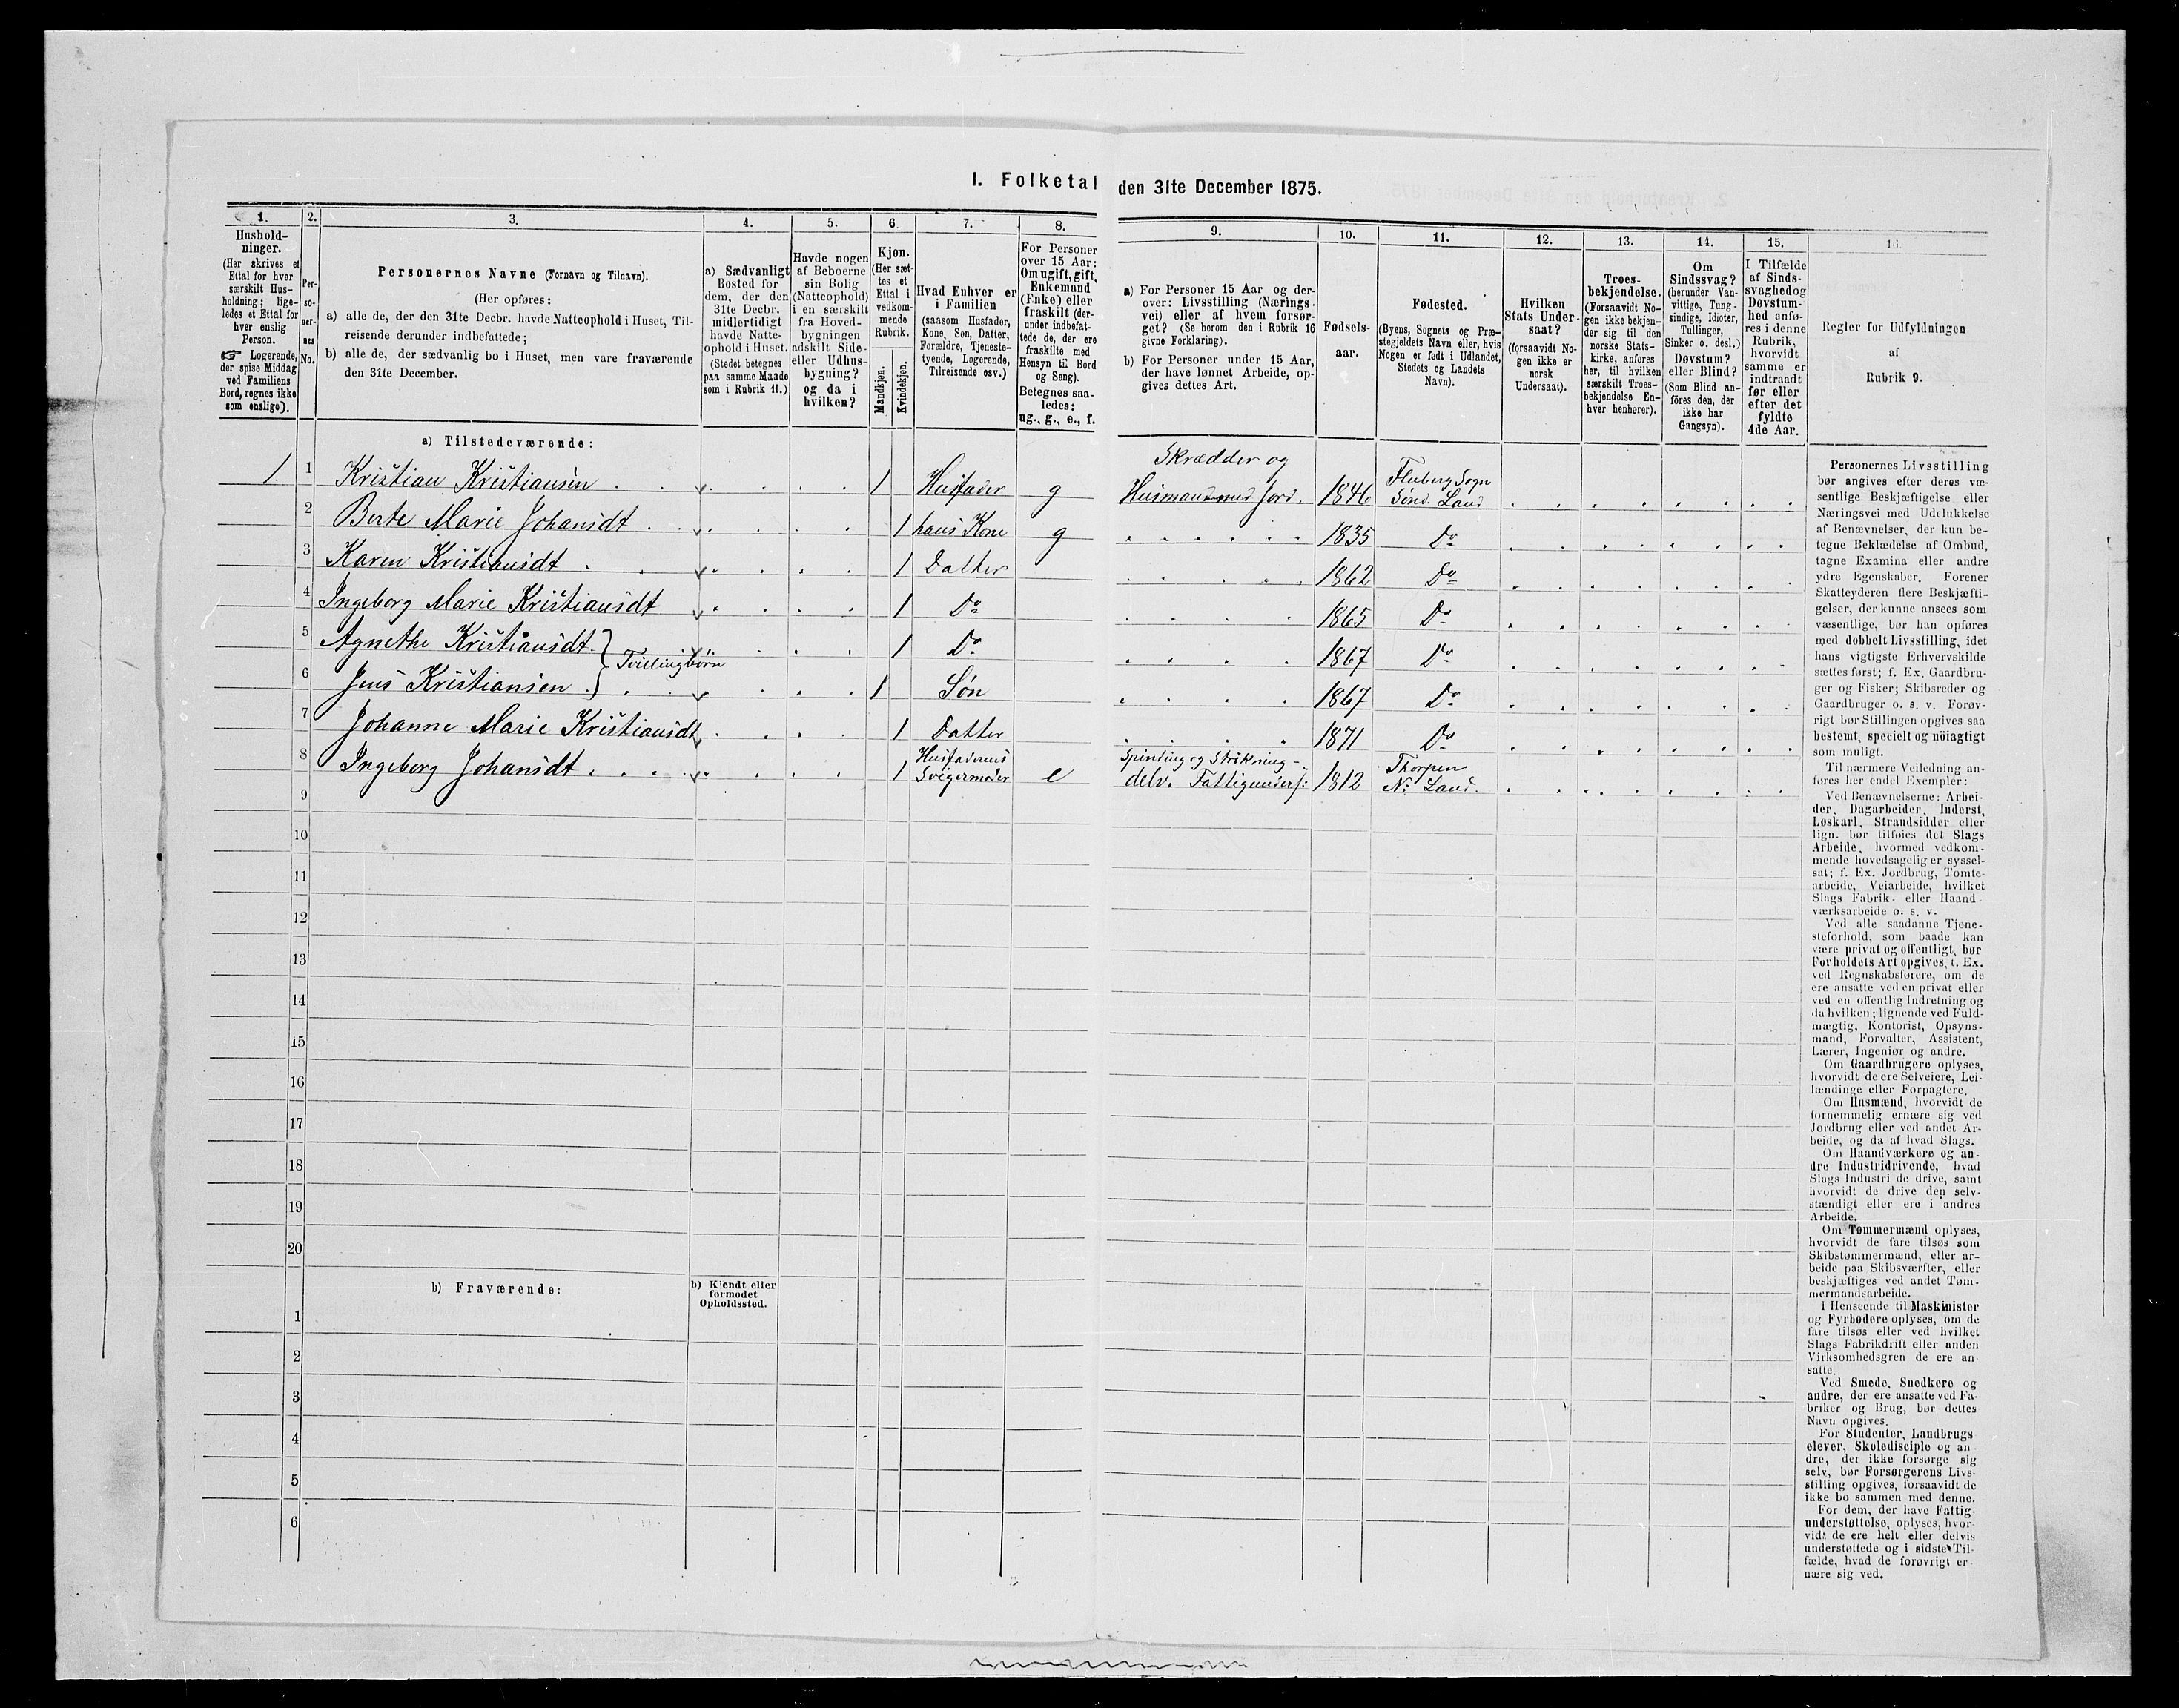 I. Folketal den 31te December 1875.
1. 2. 3. 4. 5. 6. 7. 8. 9. 10. 11. 12. 13. 14. 15. 16.
Hushold-
ninger.
(Her skrives et
Ettal for hver
særskilt Hus-
holdning; lige-
ledes et Ettal for
hver enslig
Person.
☞ Logerende,
der spise Middag
ved Familiens
Bord, regnes ikke
som enslige).
Per-
so-
ner-
nes
No.
Personernes Navne (Fornavn og Tilnavn).
(Her opføres:
a) alle de, der den 31te Decbr. havde Natteophold i Huset, Til-
reisende derunder indbefattede;
b) alle de, der sædvanlig bo i Huset, men vare fraværende
den 31te December.
a) Sædvanligt
Bosted for
dem, der den
31te Decbr.
midlertidigt
havde Natte-
ophold i Huset.
(Stedet betegnes
paa samme Maade
som i Rubrik 11.)
Havde nogen
af Beboerne
sin Bolig
(Natteophold)
i en særskilt
fra Hoved-
bygningen
adskilt Side-
eller Udhus-
bygning?
og da i
hvilken?
Kjøn.
(Her sæt-
tes et
Ettal i
vedkom-
mende
Rubrik.
Mandkjøn.
Kvindekjøn.
Hvad Enhver er
i Familien
(saasom Husfader,
Kone, Søn, Datter,
Forældre, Tjeneste-
tyende, Logerende,
Tilreisende osv.)
For Personer
over 15 Aar:
Om ugift, gift,
Enkemand
(Enke) eller
fraskilt (der-
under indbefat-
tede de, der ere
fraskilte med
Hensyn til Bord
og Seng).
Betegnes saa-
ledes:
ug., g., e., f.
a) For Personer 15 Aar og der-
over: Livsstilling (Nærings-
vei) eller af hvem forsør-
get? (Se herom den i Rubrik 16
givne Forklaring).
b) For Personer under 15 Aar,
der have lønnet Arbeide, op-
gives dettes Art.
Fødsels-
aar.
Fødested.
(Byens, Sognets og Præ-
stegjeldets Navn eller, hvis
Nogen er født i Udlandet,
Stedets og Landets
Navn).
Hvilken
Stats Under-
saat?
(forsaavidt No-
gen ikke er
norsk
Undersaat).
Troes-
bekjendelse.
(Forsaavidt No-
gen ikke bekjen-
der sig til den
norske Stats-
kirke, anføres
her, til hvilken
særskilt Troes-
bekjendelse En-
hver henhører).
Om
Sindssvag?
(herunder Van-
vittige, Tung-
sindige, Idioter,
Tullinger,
Sinker o. desl.)
Døvstum?
eller Blind?
(Som Blind an-
føres den, der
ikke har
Gangsyn).
I Tilfælde
af Sinds-
svaghed og
Døvstum-
hed anfø-
res i denne
Rubrik,
hvorvidt
samme er
indtraadt
før eller
efter det
fyldte
4de Aar.
Regler for Udfyldningen
af
Rubrik 9.
a) Tilstedeværende:
1 1 Kristian Kristiansen 1 Husfader g Skrædder og
Husmand med Jord. 1846 Fluberg Sogn
Sønd. Land
2 Berte Marie Johansdt 1 hans Kone g 1835 Do
3 Karen Kristiansdt 1 Datter 1862 Do
4 Ingeborg Marie Kristiansdt 1 Do 1865 Do
5 Agnethe Kristiansdt. } Tvillingbørn 1 Do 1867 Do
6 Jens Kristiansen 1 Søn 1867 Do
7 Johanne Marie Kristiansdt 1 Datter 1871 Do
8 Ingeborg Johansdt 1 Husfaderens
Svigermoder e Spinding og Strikning -
delv. Fattigunders: 1812 Thorpen
N: Land.
9
10
11
12
13
14
15
16
17
18
19
20
b) Fraværende:
b) Kjendt eller
formodet
Opholdssted.
1
2
3
4
5
6
Personernes Livsstilling
bør angives efter deres væ-
sentlige Beskjæftigelse eller
Næringsvei med Udelukkelse
af Benævnelser, der kun be-
tegne Beklædelse af Ombud,
tagne Examina eller andre
ydre Egenskaber. Forener
Skatteyderen flere Beskjæfti-
gelser, der kunne ansees som
væsentlige, bør han opføres
med dobbelt Livsstilling, idet
hans vigtigste Erhvervskilde
sættes først; f. Ex. Gaardbru-
ger og Fisker; Skibsreder og
Gaardbruger o. s. v. Forøv-
rigt bør Stillingen opgives saa
bestemt, specielt og nøiagtigt
som muligt.
Til nærmere Veiledning an-
føres her endel Exempler:
Ved Benævnelserne: Arbei-
der, Dagarbeider, Inderst,
Løskarl, Strandsidder eller
lign. bør tilføies det Slags
Arbeide, hvormed vedkom-
mende hovedsagelig er syssel-
sat; f. Ex. Jordbrug, Tomte-
arbeide, Veiarbeide, hvilket
Slags Fabrik- eller Haand-
værksarbeide o. s. v.
Ved alle saadanne Tjene-
steforhold, som baade kan
være privat og offentligt, bør
Forholdets Art opgives, t. Ex.
ved Regnskabsførere, om de
ere ansatte ved en privat eller
ved en offentlig Indretning og
da hvilken; lignende ved Fuld-
mægtig, Kontorist, Opsyns-
mand, Forvalter, Assistent,
Lærer, Ingeniør og andre.
Om Gaardbrugere oplyses,
hvorvidt de ere Selveiere, Lei-
lændinge eller Forpagtere.
Om Husmænd, hvorvidt de
fornemmelig ernære sig ved
Jordbrug eller ved andet Ar-
beide, og da af hvad Slags.
Om Haandværkere og an-
dre Industridrivende, hvad
Slags Industri de drive, samt
hvorvidt de drive den selv-
stændigt eller ere i andres
Arbeide.
Om Tømmermænd oplyses,
hvorvidt de fare tilsøs som
Skibstømmermænd, eller ar-
beide paa Skibsværfter, eller
beskjæftiges ved andet Tøm-
mermandsarbeide.
I Henseende til Maskinister
og Fyrbødere oplyses, om de
fare tilsøs eller ved hvilket
Slags Fabrikdrift eller anden
Virksomhedsgren de ere an-
satte.
Ved Smede, Snedkere og
andre, der ere ansatte ved Fa-
briker og Brug, bør dettes
Navn opgives.
For Studenter, Landbrugs
elever, Skoledisciple og an-
dre, der ikke forsørge sig
selv, bør Forsørgerens Livs-
stilling opgives, forsaavidt de
ikke bo sammen med denne.
For dem, der have Fattig-
understøttelse, oplyses, hvor-
vidt de ere helt eller delvis
understøttede og i sidste Til-
fælde, hvad de forøvrigt er-
nære sig ved.